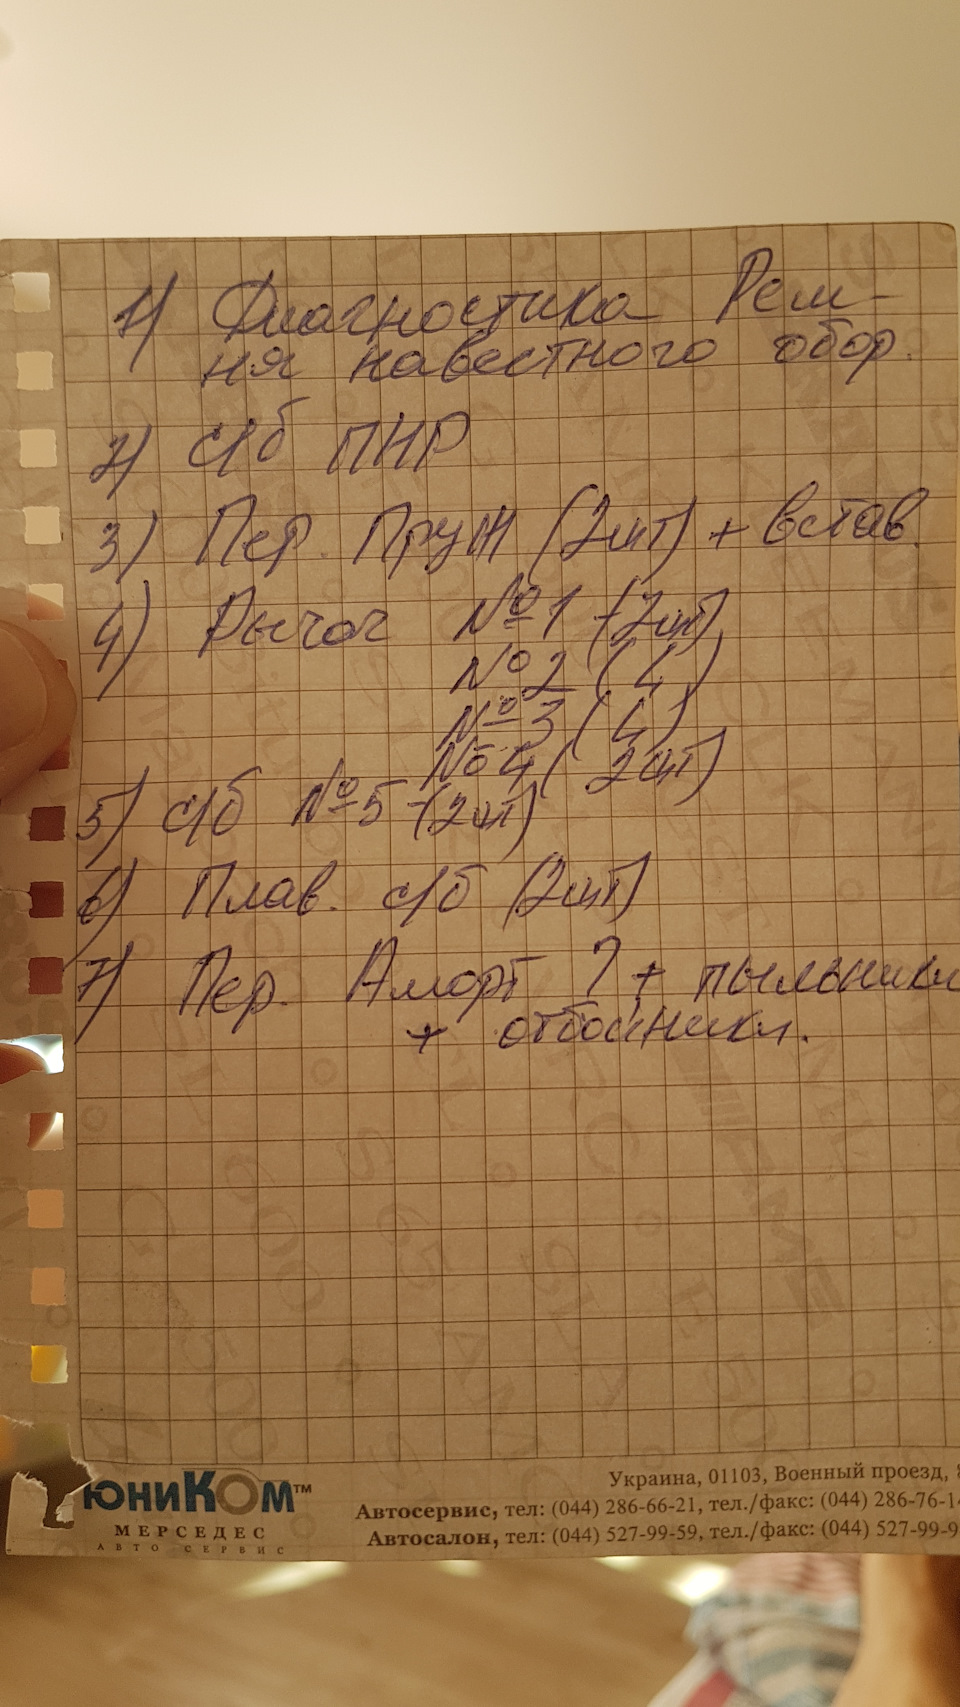 1) Диагностика Рем-
ня навестного обор.
2) с/б ПНР
3) Пер. Пруж (2шт) + встав.
4) Рычаг №1 - (2шт)
№2 (4)
№3 (4)
№4 (2шт)
5) с/б №5 - (2шт)
6) Плав. с/б (2шт)
7) Пер. Аморт ? + пыльники
+ отбойники.
ЮНИКОМ™
МЕРСЕДЕС
АВТО СЕРВИС
Украина, 01103, Военный проезд, 8
Автосервис, тел: (044) 286-66-21, тел./факс: (044) 286-76-14
Автосалон, тел: (044) 527-99-59, тел./факс: (044) 527-99-9